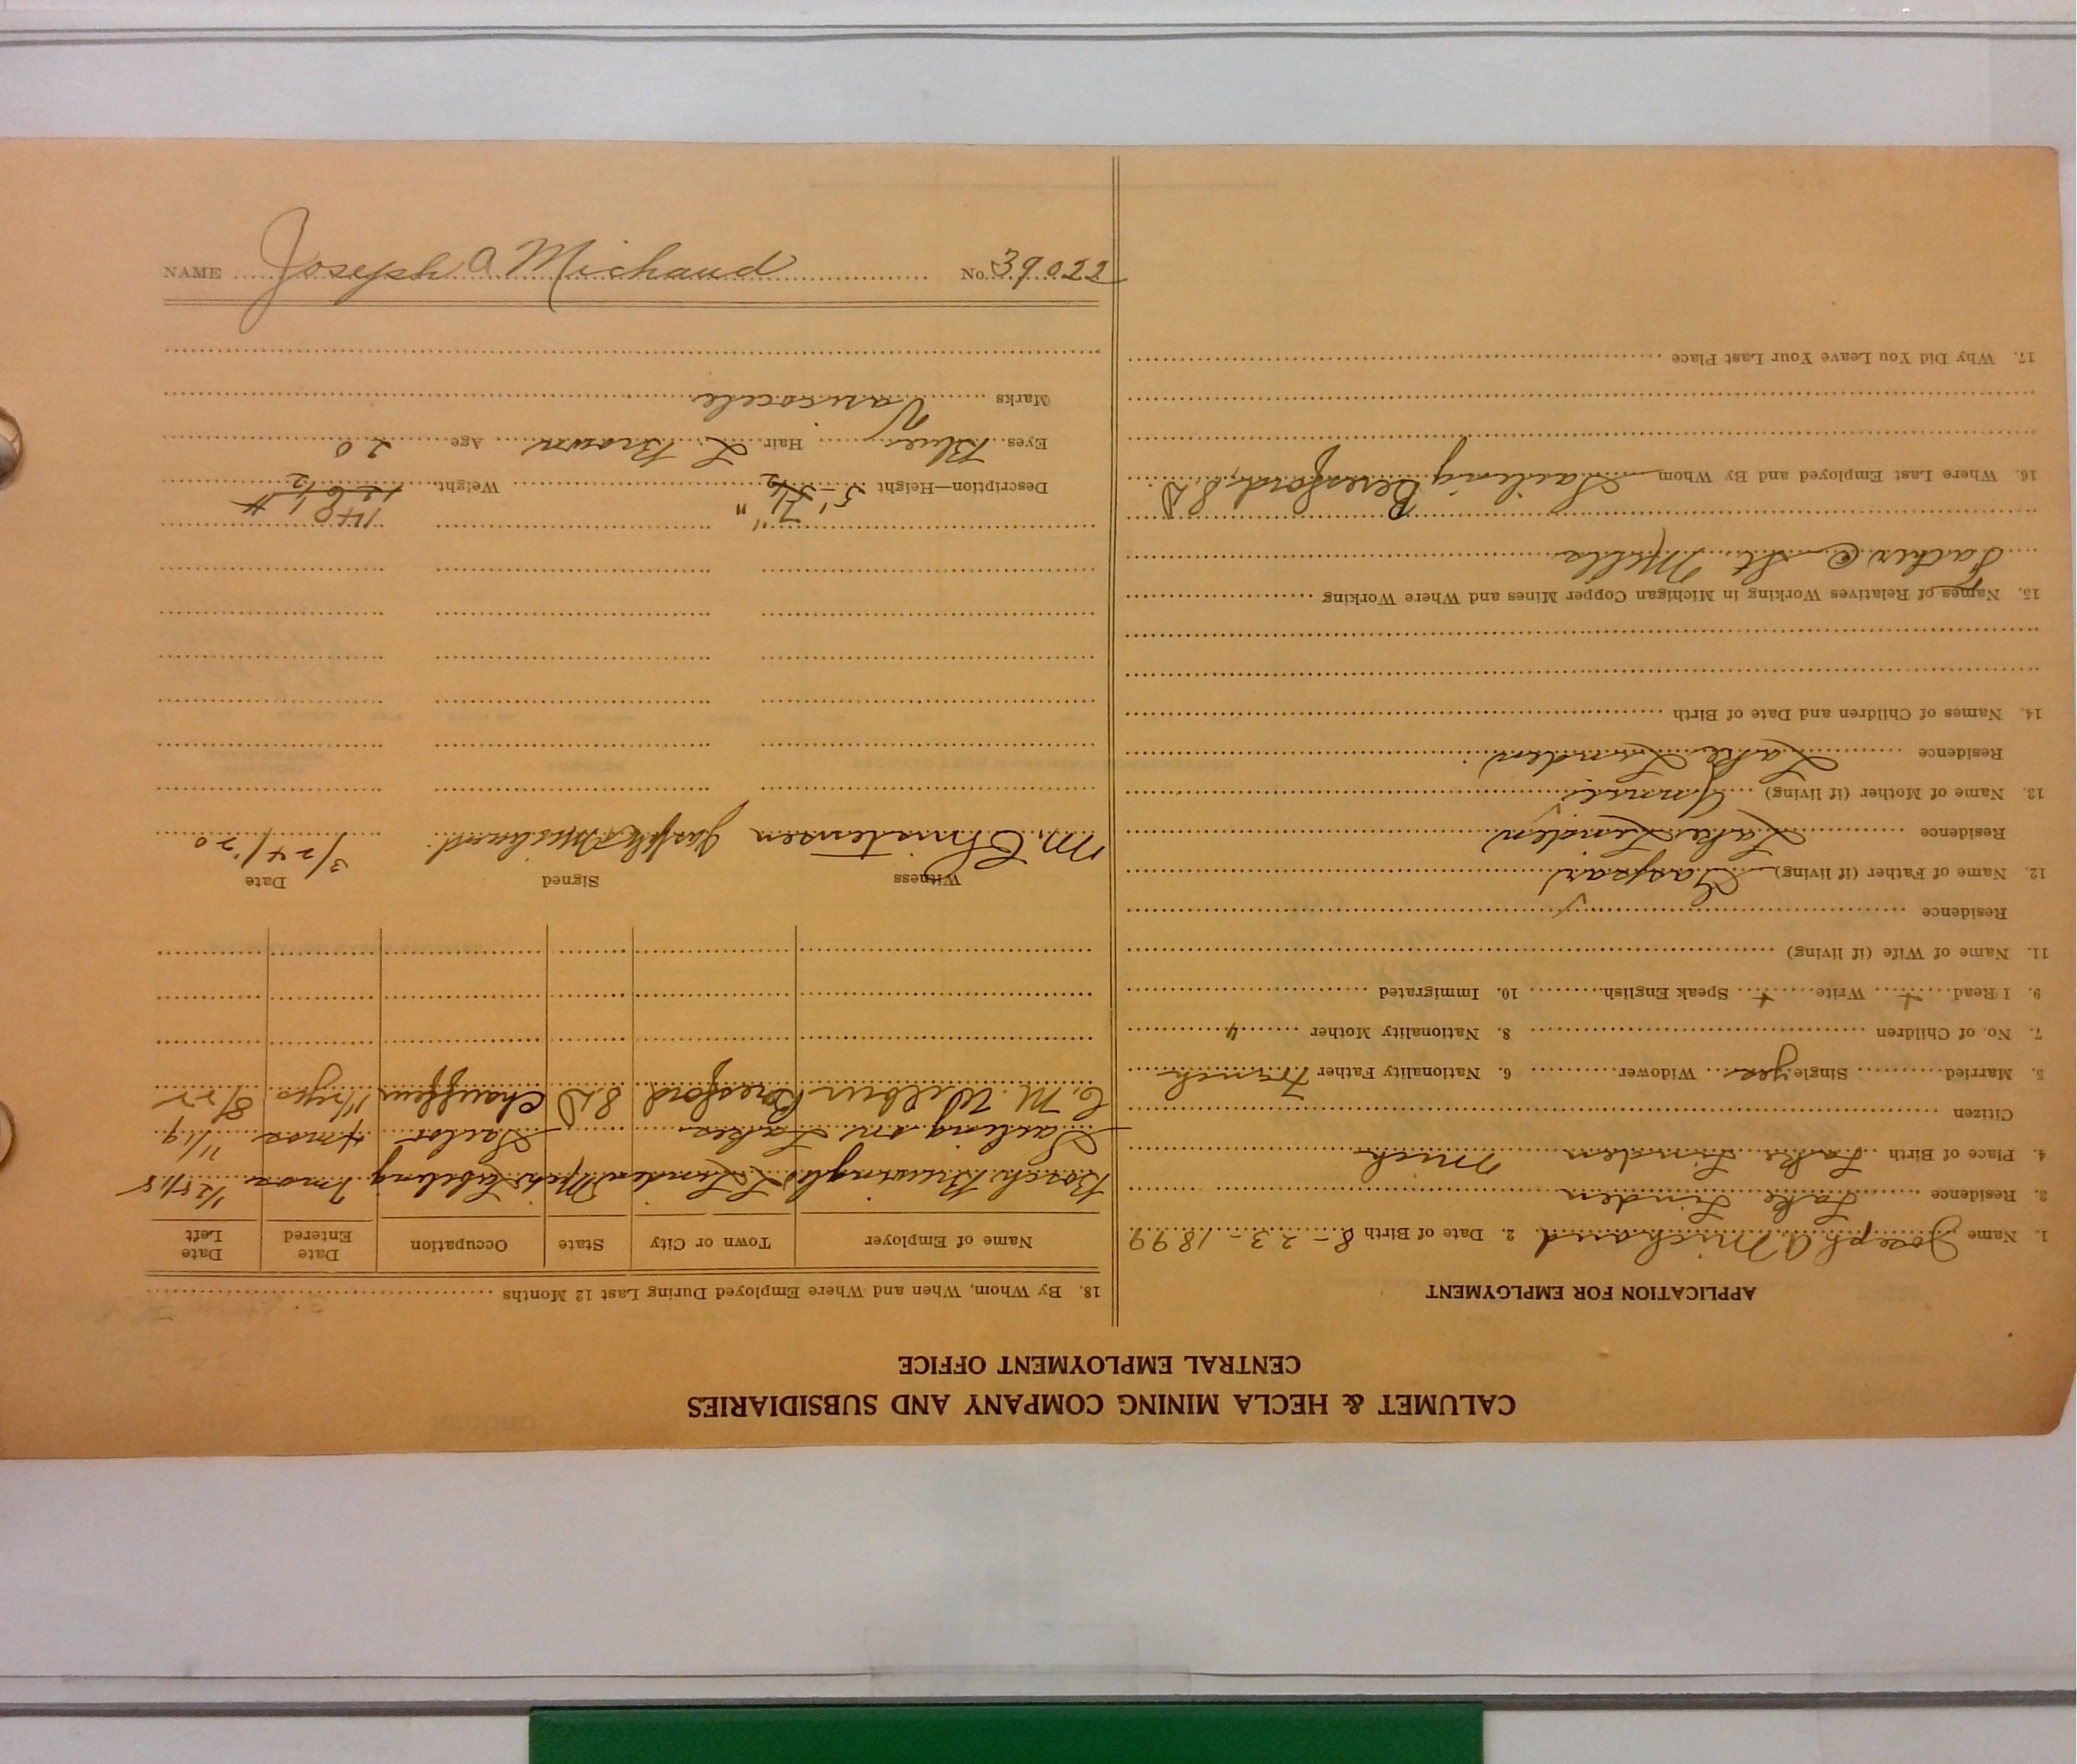 CALUMET & HECLA MINING COMPANY AND SUBSIDIARIES
CENTRAL EMPLOYMENT OFFICE
APPLICATION FOR EMPLOYMENT
1. Name Joseph A Michaud 2. Date of Birth 8-23-1899
3. Residence Lake Linden
4. Place of Birth Lake Linden Mich
Citizen
5. Married Single yes Widower 6. Nationality Father French
7. No. of Children 8. Nationality Mother "
9. I Read + Write + Speak English 10. Immigrated
11. Name of Wife (if living)
Residence
12. Name of Father (if living) Gaspar
Residence Lake Linden
13. Name of Mother (if living) Annie
Residence Lake Linden
14. Names of Children and Date of Birth
15. Names of Relatives Working in Michigan Copper Mines and Where Working
Father @ St. Mills
16. Where Last Employed and By Whom Sailing Beresford, S D
17. Why Did You Leave Your Last Place
18. By Whom, When and Where Employed During Last 12 Months
Name of Employer Town or City State Occupation Date Entered Date Left
Bosch Brewing Co L Linden Mich Labeling 7 mos 1/25/18
Sailing on Lakes Sailor 4 mos 11/19
C. M. Wilbur Beresford S D Chauffeur 1 1/2 yrs 8/22
Witness Signed Date
M. Christensen Joseph A Michaud. 3/24/20
7" 148 #
Description—Height 5' 5 1/2" Weight 136 1/2
Eyes Blue Hair L Brown Age 20
Marks Varicocele
NAME Joseph A Michaud No. 39022